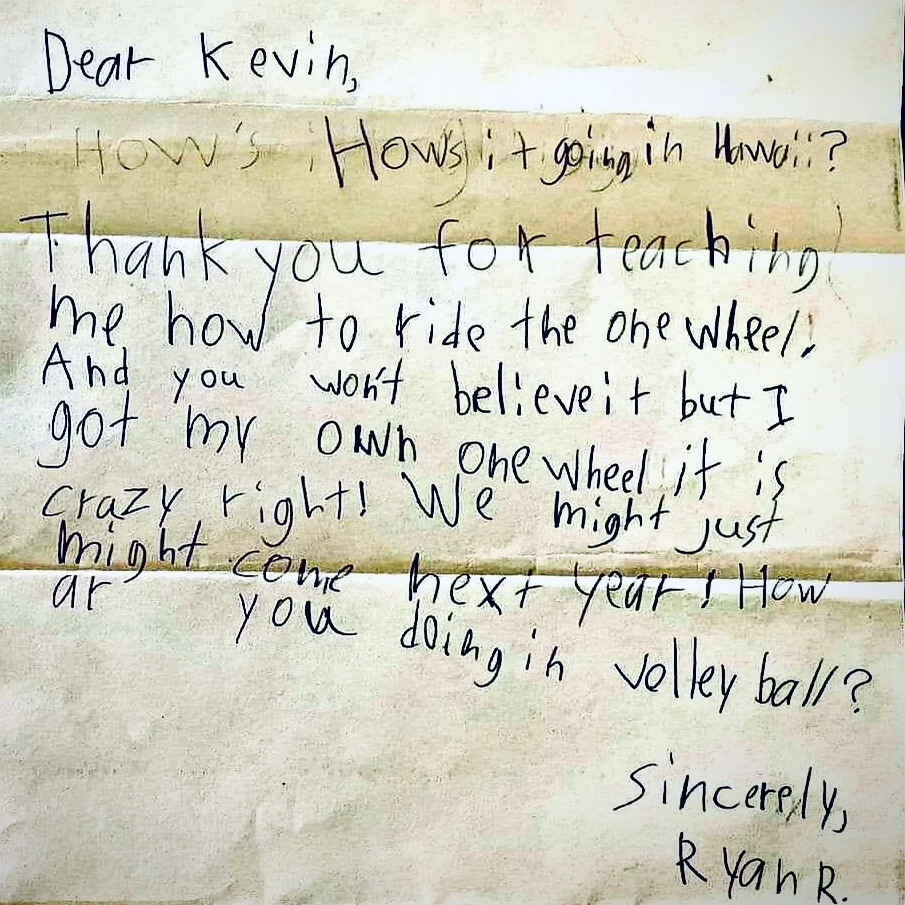 Dear Kevin,
How's i How's it going in Hawaii?
Thank you for teaching
me how to ride the one wheel!
And you won't believe it but I
got my own one wheel it is
crazy right! We might just
might come next year! How
ar you doing in volley ball?
Sincerely,
Ryan R.